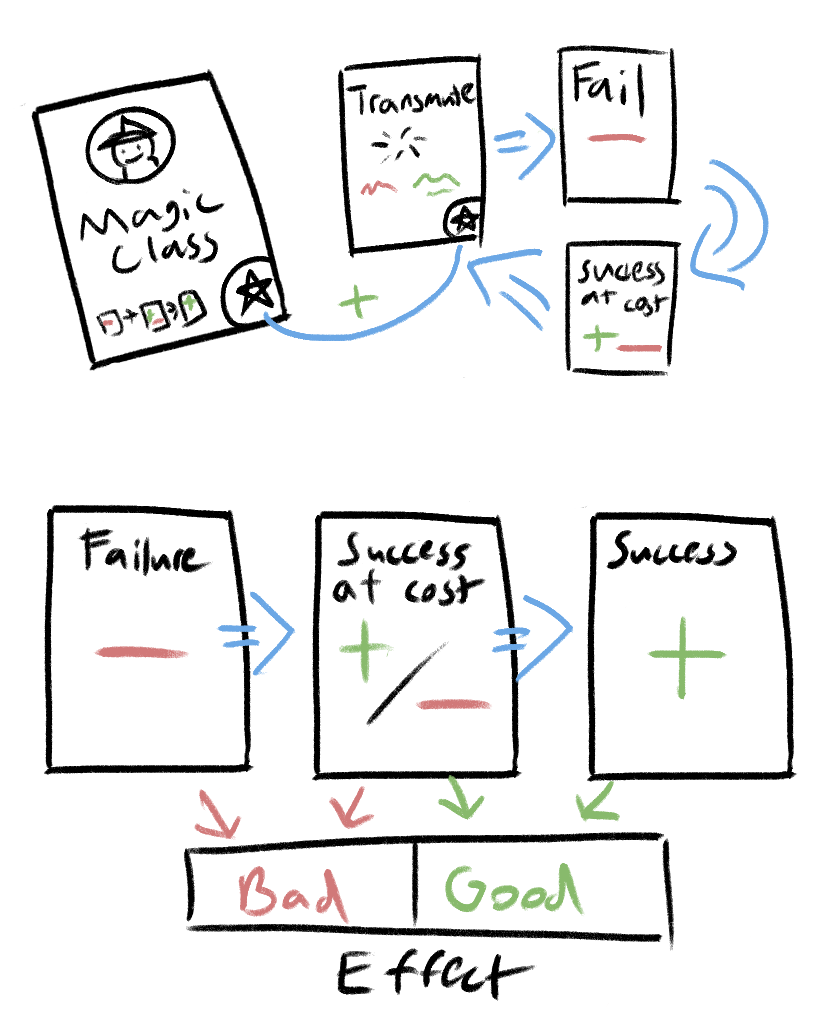 Magic
Class
Transmute
Fail
success
at cost
Failure
Success
at cost
Success
Bad
Good
Effect